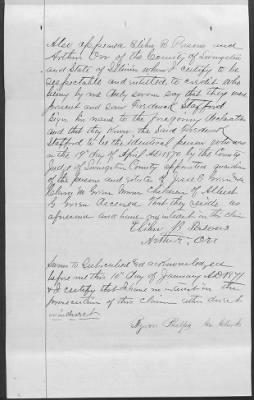 Also appeared Elihu B Parsons and
Arthur Orr of the County of Livingston
and State of Illinois whom I certify to be
respectable and intitled to credit who
being by me duly sworn say that they was
present and saw Frederick Stafford
sign his name to the foregoing Declaration
and that they Know the said Frederick
Stafford to be the identical person who was
on the 19th day of April AD 1870 by the County
Judge of Livingston County appointed guardian
of the persons and estate of
Henry M Green Minor Children of Albert
G Green Deceased that they reside as
aforesaid and have no interest in this claim
Elihu B Parsons
Arthur Orr
Sworn to Subscribed and acknowledged
before me this 10th day of January AD 1871
& I certify that I have no interest in the
prosecution of this claim either direct
indirect
Byron Phelps Co Clerk